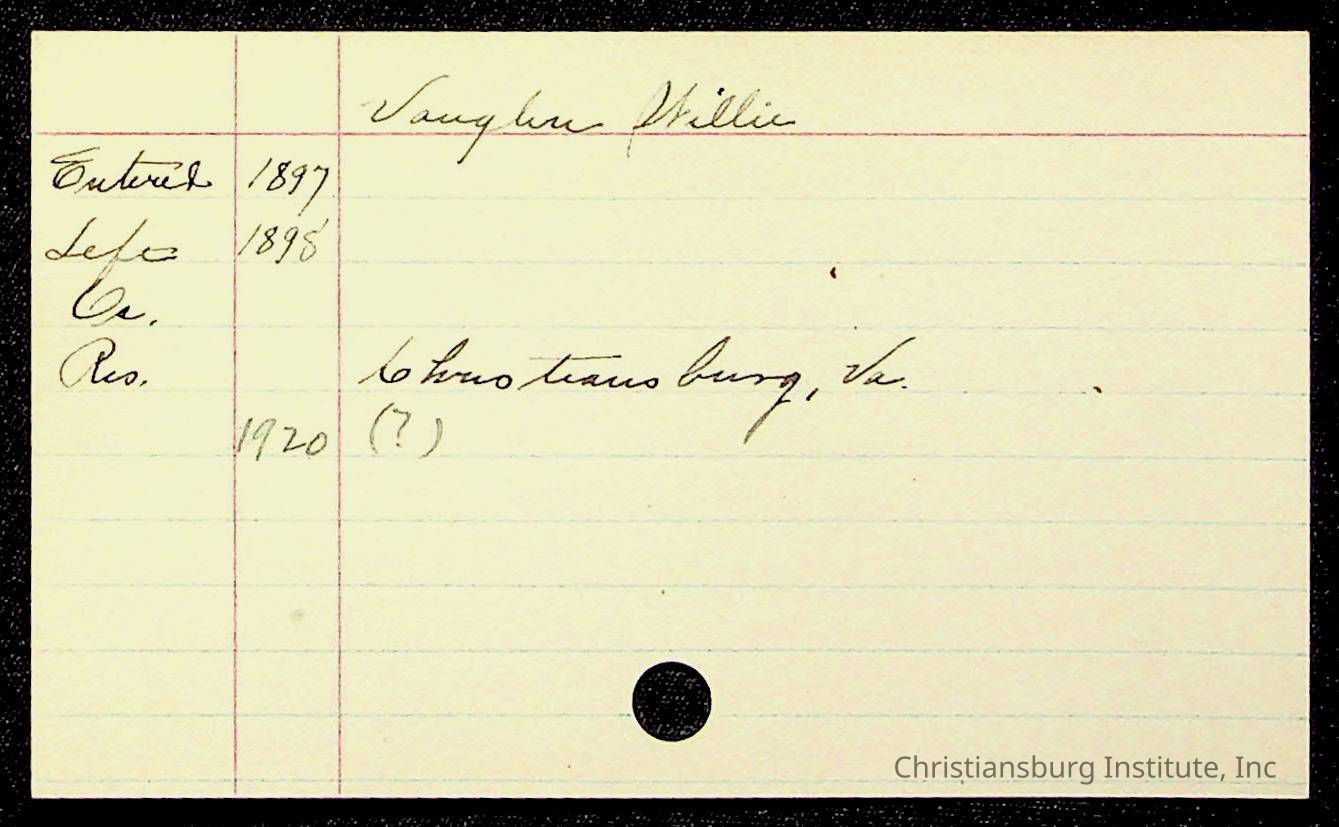 Vaughn Willie
Entered 1897
Left 1898
Oc.
Res. Christiansburg, Va.
1920 (?)
Christiansburg Institute, Inc